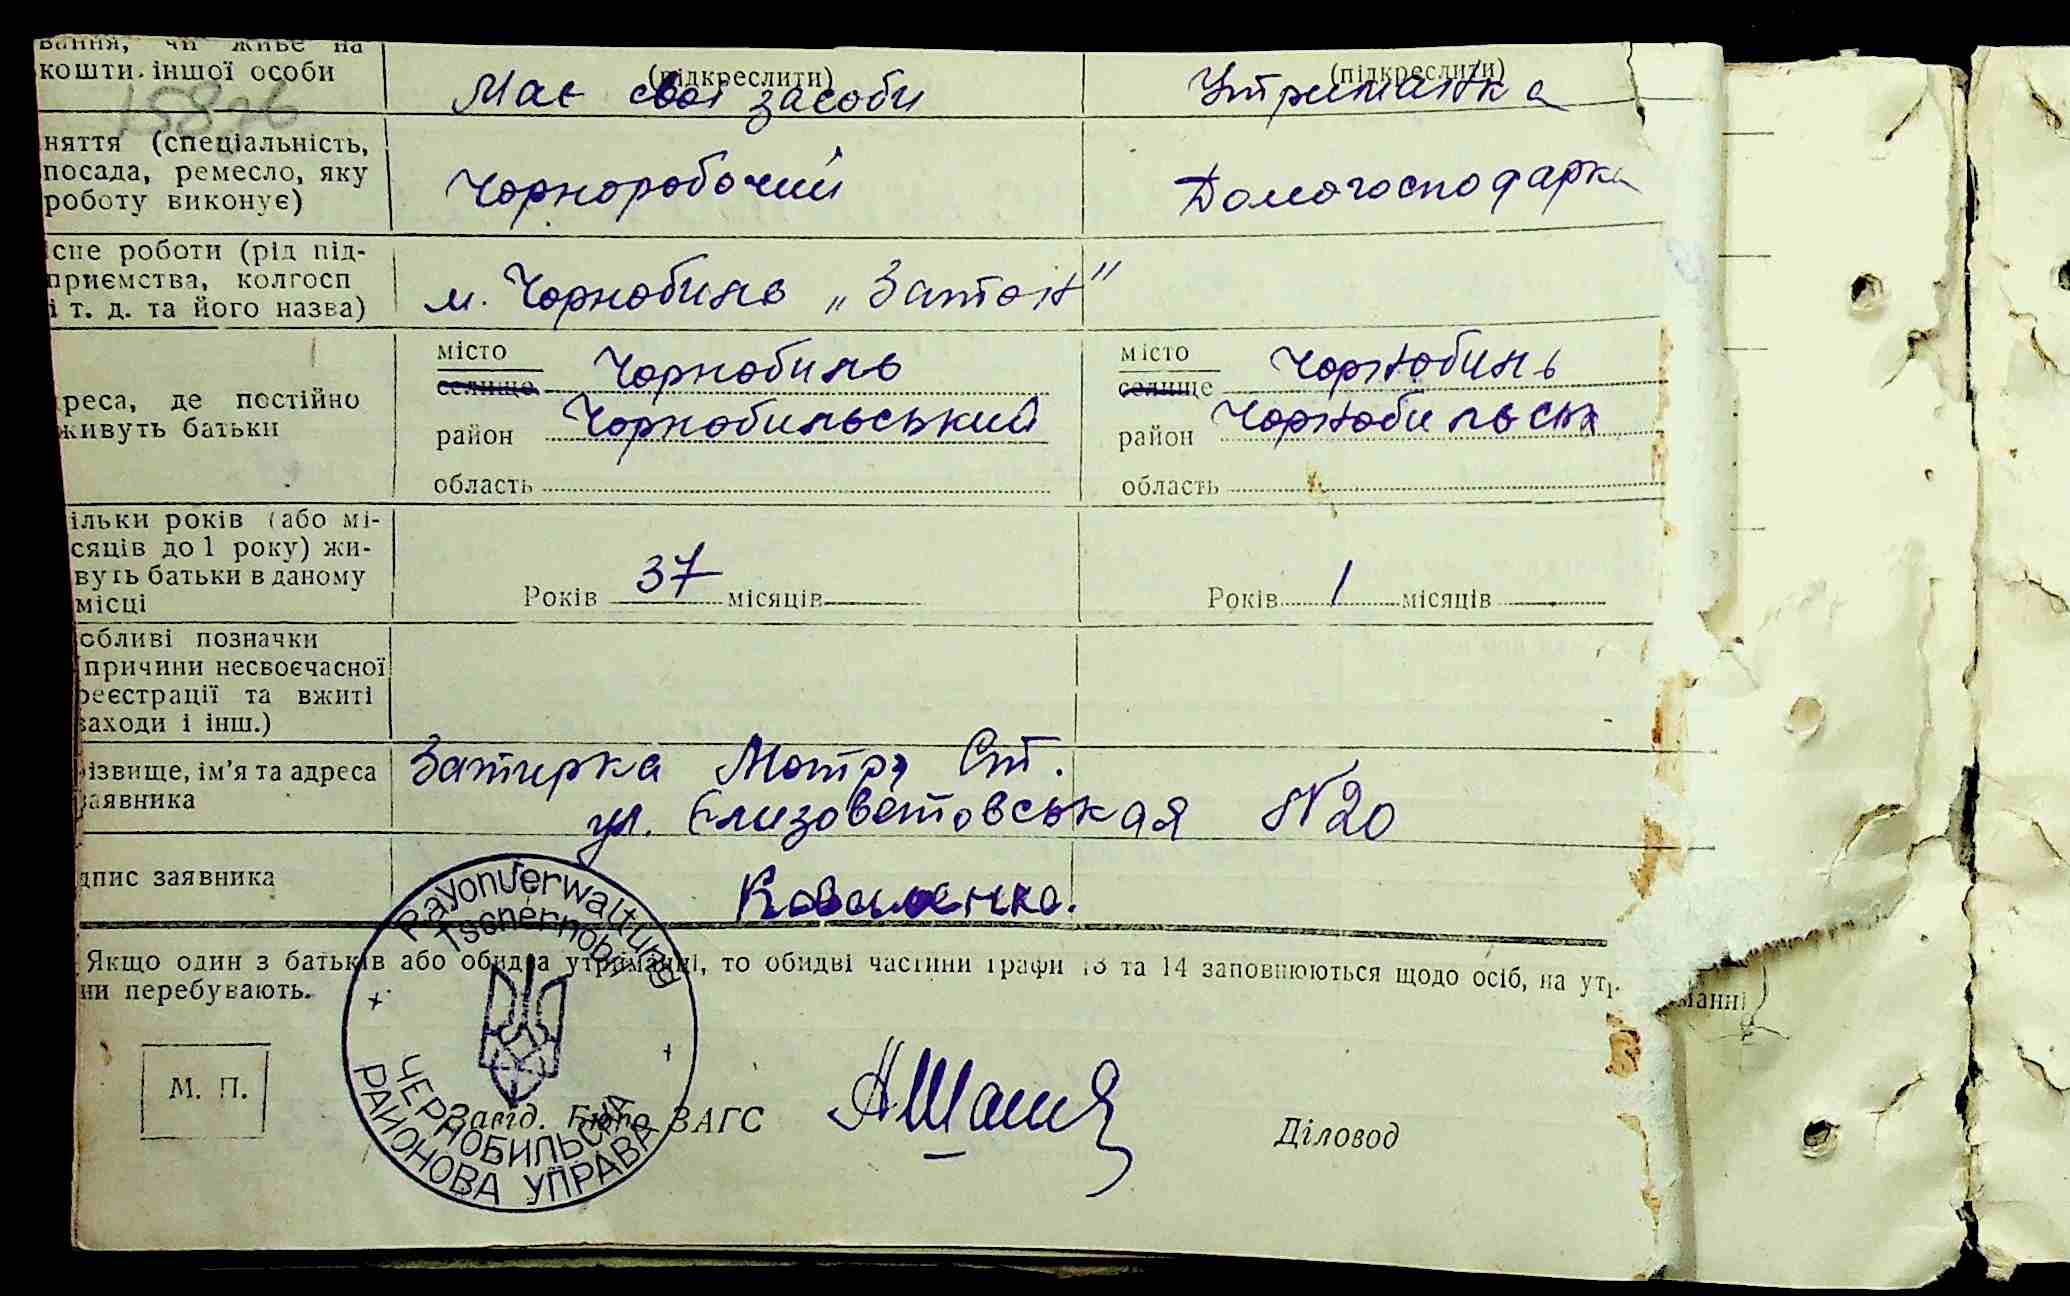 вання, чи живе на
кошти іншої особи
(підкреслити)
Має свої засоби
(підкреслити)
Утриманка
няття (спеціальність,
посада, ремесло, яку
роботу виконує)
Чорноробочий
Домогосподарка
існе роботи (рід під-
приємства, колгосп
і т. д. та його назва)
м. Чорнобиль „Затон"
реса, де постійно
живуть батьки
місто
селище
Чорнобиль
район Чорнобильський
область
місто
селище
Чорнобиль
район Чорнобильськ
область
ільки років (або мі-
сяців до 1 року) жи-
вуть батьки в даному
місці
Років 37 місяців
Років 1 місяців
собливі позначки
причини несвоєчасної
реєстрації та вжиті
заходи і інш.)
різвище, ім'я та адреса
заявника
Затирка Мотря Ст.
ул. Єлизоветовськая №20
дпис заявника
Коваленко.
Якщо один з батьків або обидва утриманці, то обидві частини графи 13 та 14 заповнюються щодо осіб, на утриманні
ни перебувають.
Rayonverwaltung
Tschernobyl
ЧЕРНОБИЛЬСЬКА
РАЙОНОВА УПРАВА
М. П.
Завід. Бюро ЗАГС
Діловод